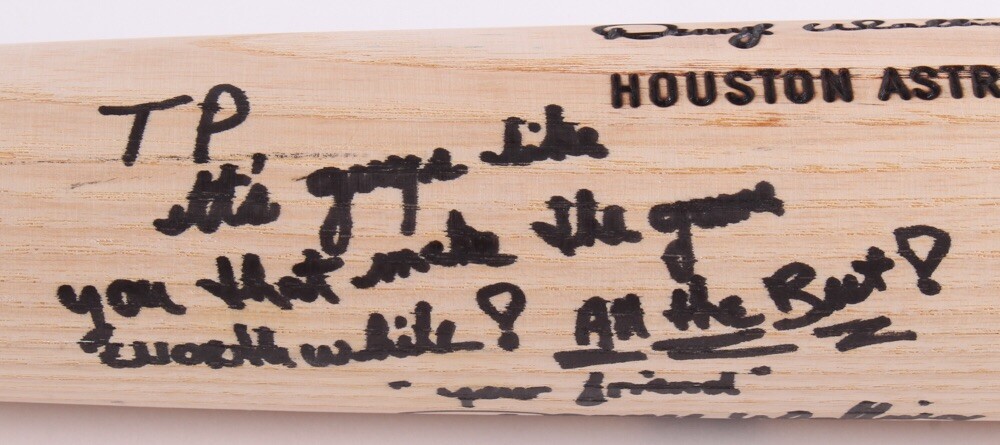 Denny Wallin
HOUSTON ASTR
TP
It's guys like
you that make the game
worth while!
All the Best!
"your friend"